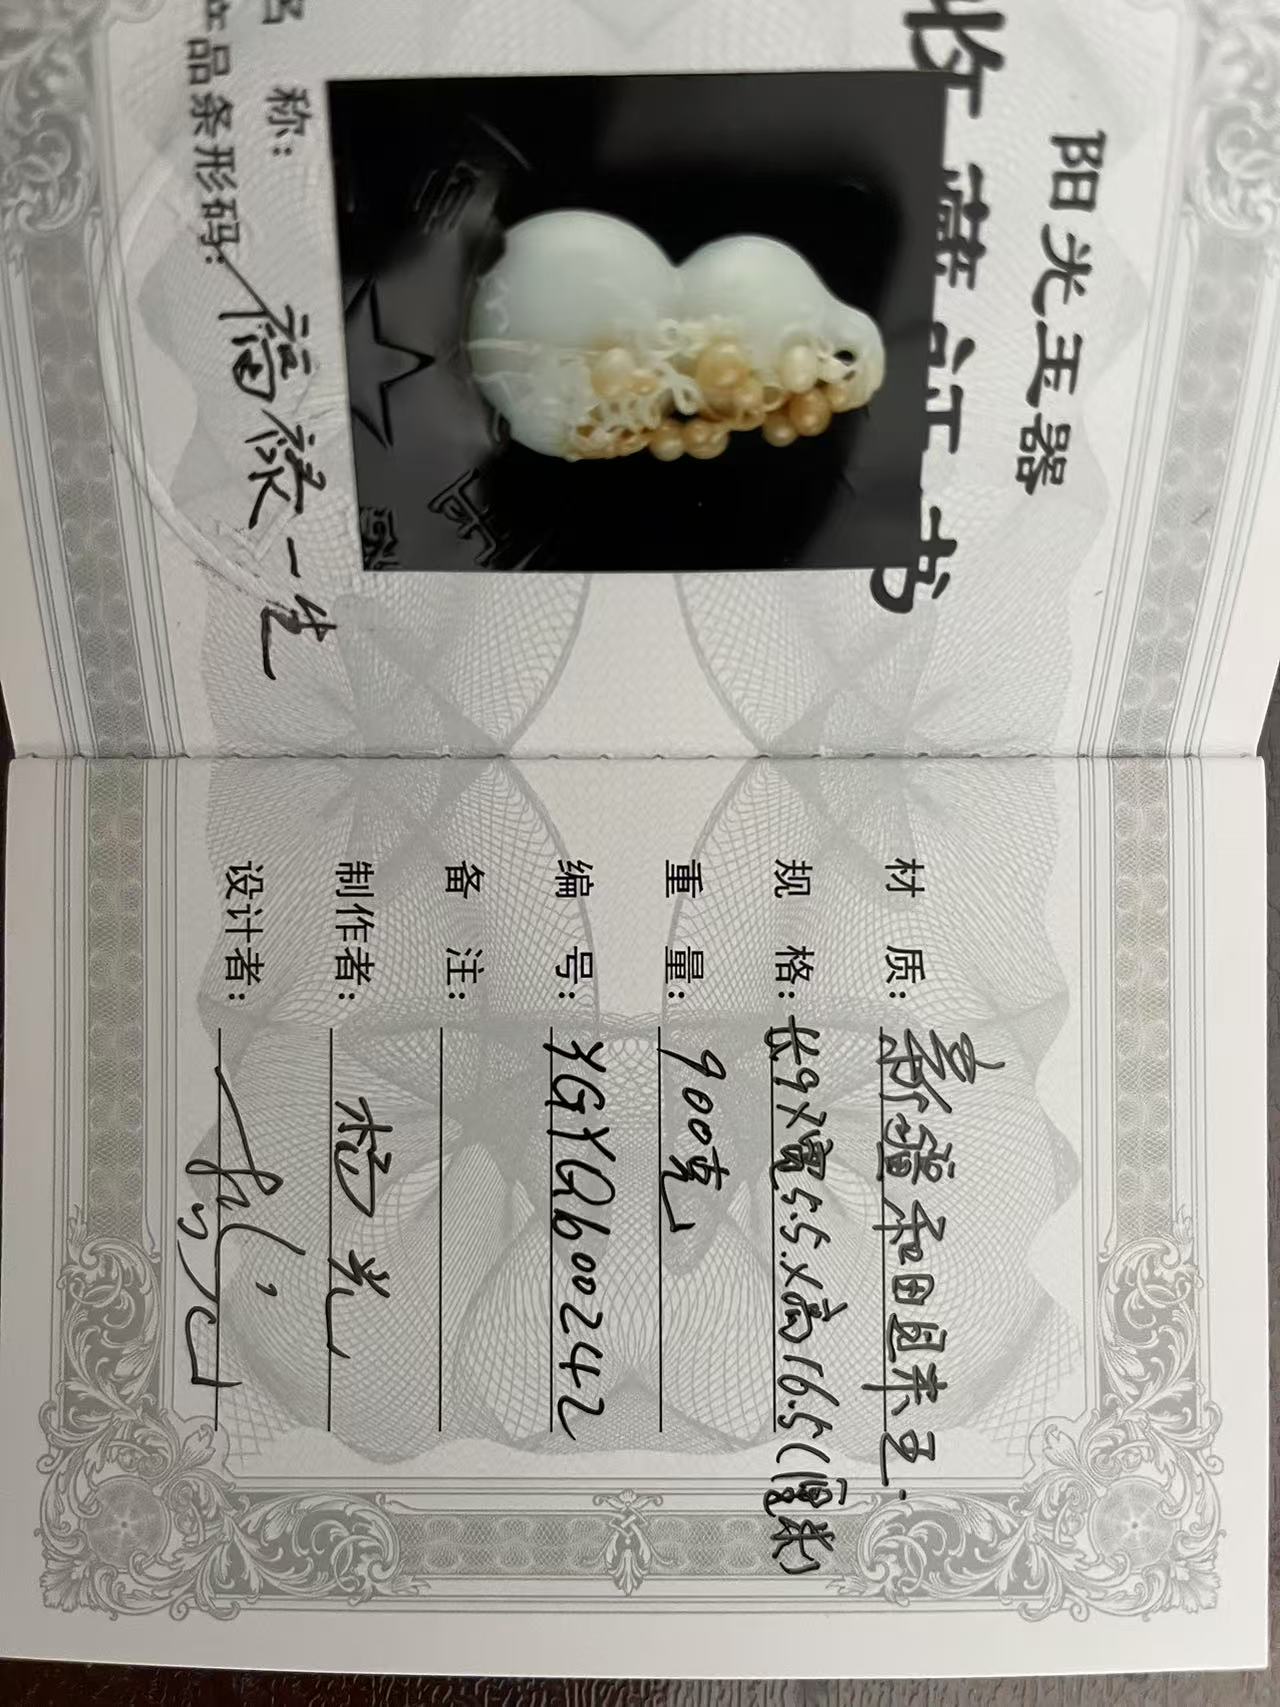 阳光玉器
收藏证书
名 称: 福禄一生
产品条形码:
材 质: 新疆和田国来玉.
规 格: 长9X宽5.5X高16.5(厘米)
重 量: 900克
编 号: YGYQ600242
备 注:
制作者: 杨光
设计者: